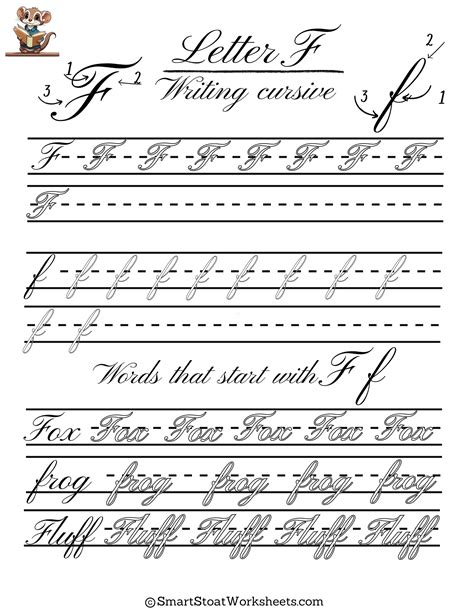 Letter F
Writing cursive
1 2 3 F
2 1 3 f
F F F F F F F F
F
f f f f f f f f
f f
Words that start with F f
Fox Fox Fox Fox Fox Fox
frog frog frog frog frog
Fluff Fluff Fluff Fluff Fluff
©SmartStoatWorksheets.com